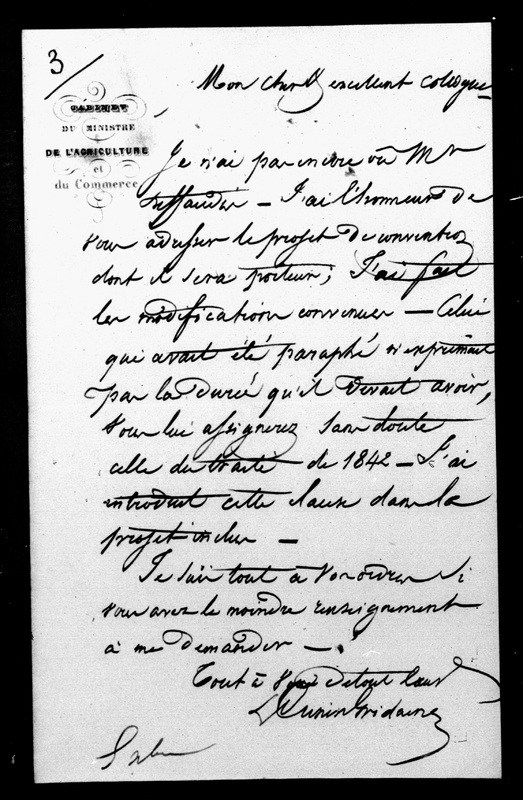 3
CABINET
DU MINISTRE
DE L'AGRICULTURE
et
du Commerce
Mon cher & excellent collègue
Je n'ai pas encore vu Mr
— J'ai l'honneur de
vous adresser le projet de convention
dont il sera porteur; J'ai fait
les modifications convenues — Celui
qui avait été paraphé n'exprimait
pas la durée qu'il devait avoir,
vous lui assignerez sans doute
celle du traité de 1842 — J'ai
introduit cette clause dans le
projet inclus —
Je suis tout à vos ordres si
vous avez le moindre renseignement
à me demander —
Tout à vous de tout cœur
L Cunin Gridaine